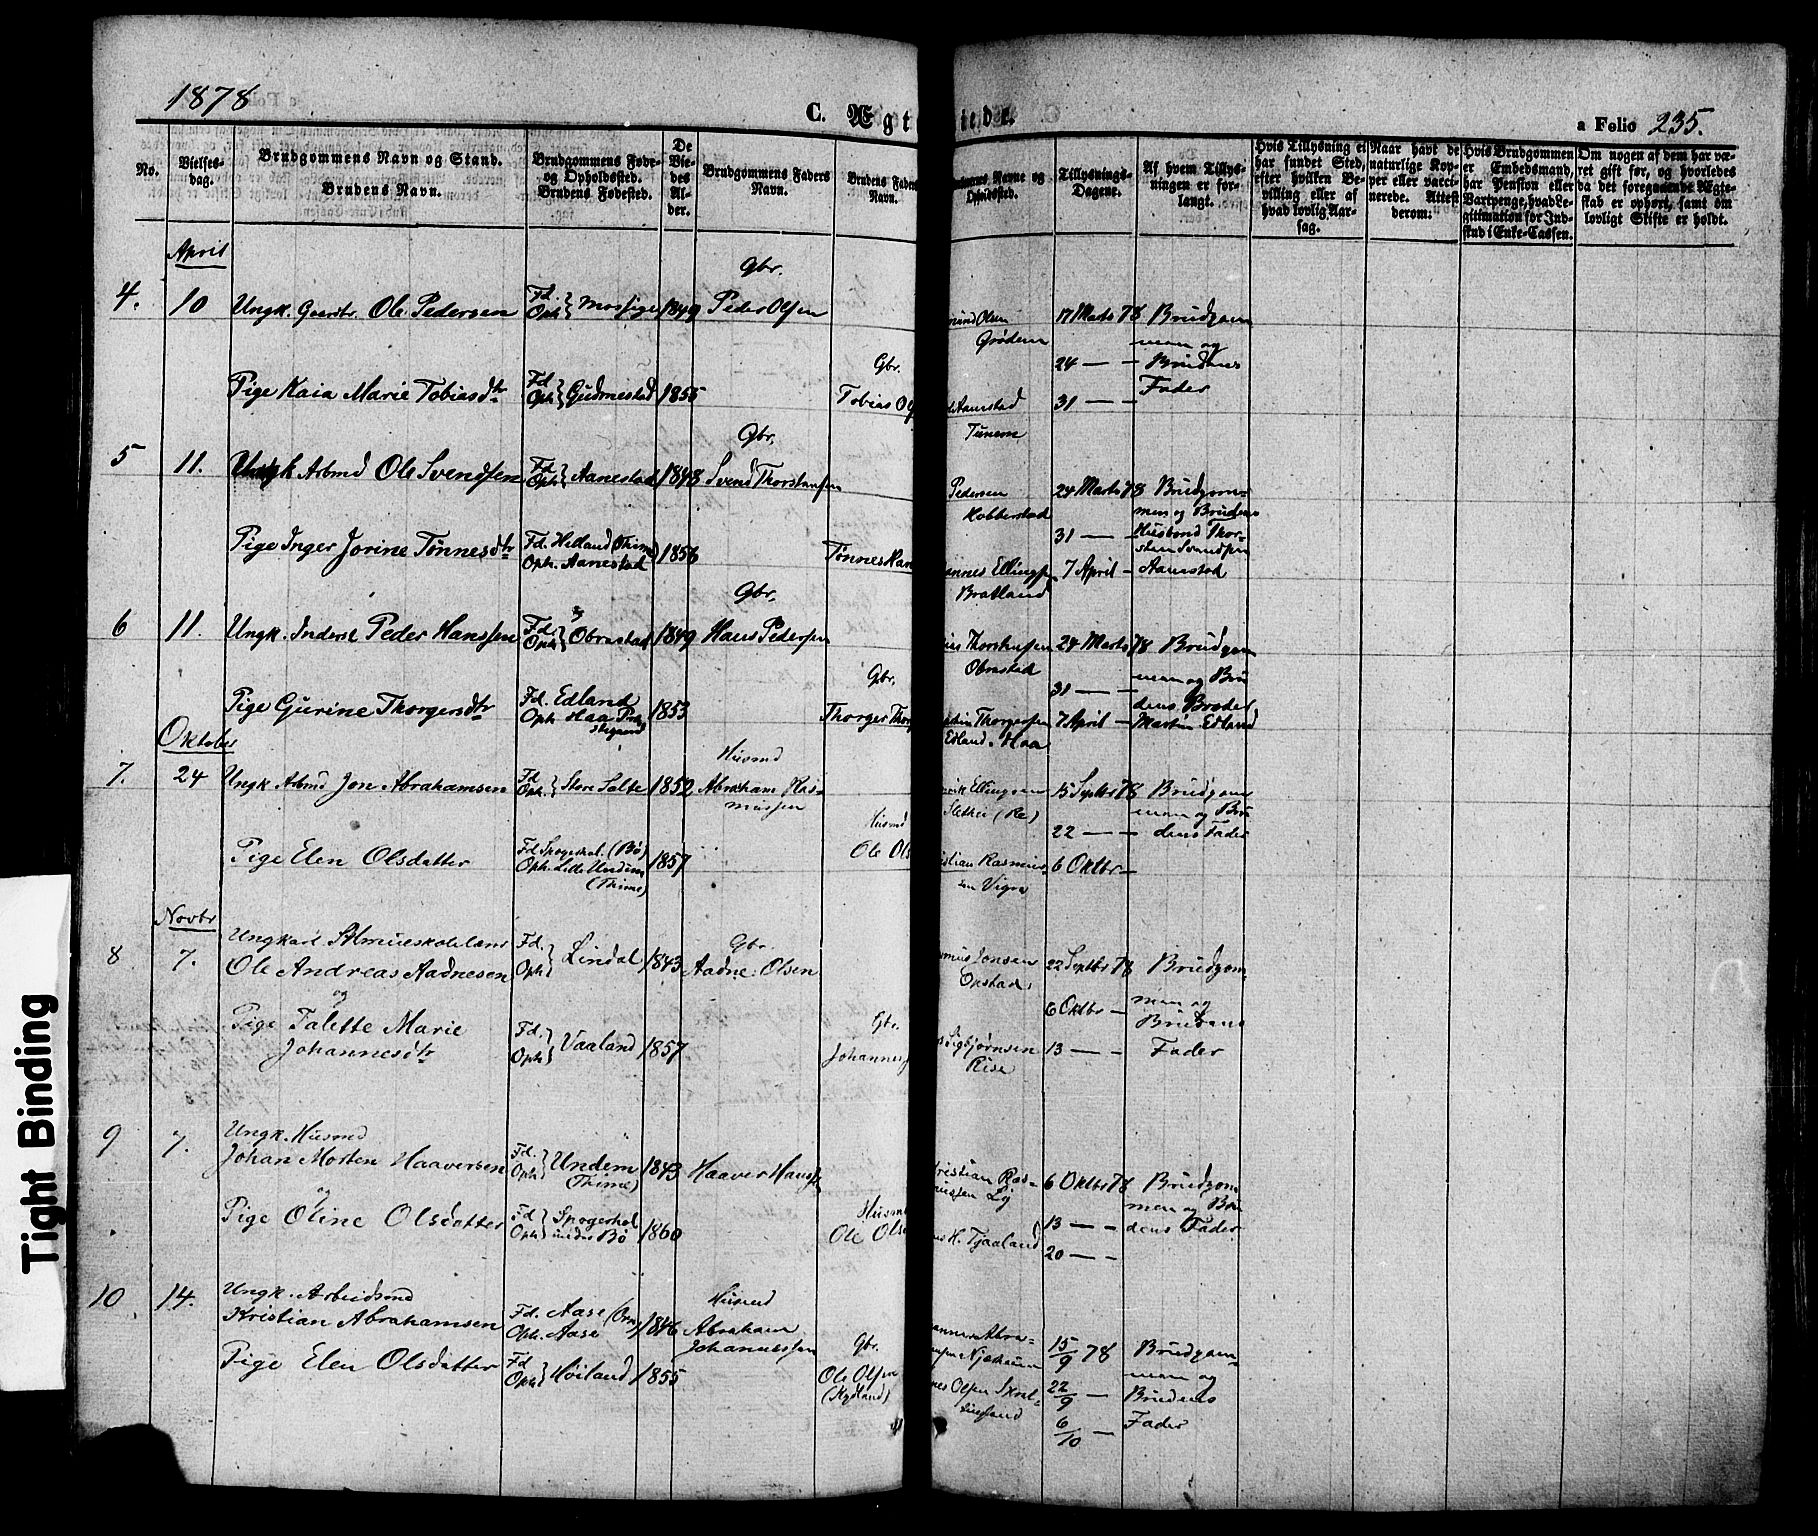 1878
C. Ægt iede.
a Folio 235.
No.
Vielses-
dag.
Brudgommens Navn og Stand.
Brudens Navn.
Brudgommens Føde-
og Opholdssted.
Brudens Fødested.
De
Vie-
des
Al-
der.
Brudgommens Faders
Navn.
Brudens Fader
Navn.
Navne og
Opholdssted.
Tillysnings-
Dagene.
Af hvem Tillys-
ningen er for-
langt.
Hvis Tillysning ei
har fundet Sted,
efter hvilken Be-
villing eller af
hvad lovlig Aar-
sag.
Naar havt de
naturlige Kop-
per eller vacci-
nerede. Attest
derom:
Hvis Brudgommen
er Embedsmand,
har Pension eller
Vartpenge, hvad Le-
gitimation for Ind-
skud i Enke-Cassen.
Om nogen af dem har væ-
ret gift før, og hvorledes
da det foregaaende Ægte-
skab er ophørt, samt om
lovligt Skifte er holdt.
April
4. 10 Ungk. Ole Pedersen Fd. Oph. Mossige 1849 Gbr. Peder Olsen
Olsen Grødem 17 Marts 78 Brudgom
men og
24 — — Brudens
Fader
Pige Kaia Marie Tobiasdtr Fd Oph. Gudmestad 1855 Gbr. Tobias Ol
Aanestad Tunem 31 — —
5 11. Ungk Arbmd Ole Svendsen Fd. Oph. Aanestad 1848 Gbr. Svend Thorstensen
Pedersen Kobberstad 24 Marts 78 Brudgom-
men og Brudens
31 — — Husbond Thor-
sten Svendsen
Pige Inger Jorine Tønnesdtr Fd. Helland (Thime) Oph. Aanestad 1856 Tønnes Han
annes Ellingsen Bratland 7 April — Aanestad
6 11. Ungk. Inderst Peder Hanssen Fd. Oph. Obrestad 1849 Gbr. Hans Pedersen
Obrestad 24 Marts 78 Brudgom
men og Bru
31 — — dens Broder
Pige Gurine Thorgersdtr Fd. Edland Oph. Haa 1853 Gbr. Thorger Thor
Thorgersen Edland. Haa 7 April — Martin Edland
Oktober
7. 24 Ungk Arbmd Jon Abrahamsen Fd Oph. Store Salte 1852 Husmd Abraham Ras-
mussen
Ellingsen (Re) 15 Septbr 78 Brudgom
men og Bru
22 — — dens Fader
Pige Elen Olsdatter Fd. (Bø) Oph. Lille Undem (Thime) 1857 Husmd Ole Ols
stian Rasmus-
sen Vigre 6 Oktbr —
Novbr
8 7. Ungkarl
Ole Andreas Aadnesen Fd. Oph Lindal 1843 Gbr. Aadne Olsen
Jonsen Opstad 22 Septbr 78 Brudgom
men og
6 Oktbr — Brudens
og
Pige Talette Marie
Johannesdtr Fd. Oph Vaaland 1857 Gbr. Johannes
Sigbjørnsen Rise 13 — — Fader
9 7. Ungk. Husmd
Johan Morten Haaversen Fd. Oph. Undem (Thime) 1843 Haaver Hanssen
ristian Ras- 6 Oktbr 78 Brudgom
men og Bru
13 — — dens Fader
og
Pige Oline Olsdatter Fd Oph. under Bø 1860 Husmd Ole Ols
H. Tjaaland 20 — —
10 14. Ungk. Arbeidsmd
Kristian Abrahamsen Fd. Aase Oph. Aase 1846 Husmd Abraham
Johannessen
15/9 78 Brudgom-
men og
Pige Elen Olsdatter Fd Oph. Høiland 1855 Gbr. Ole Olsen
Olsen 22/9 — Brudens
6/10 — Fader
Tight Binding